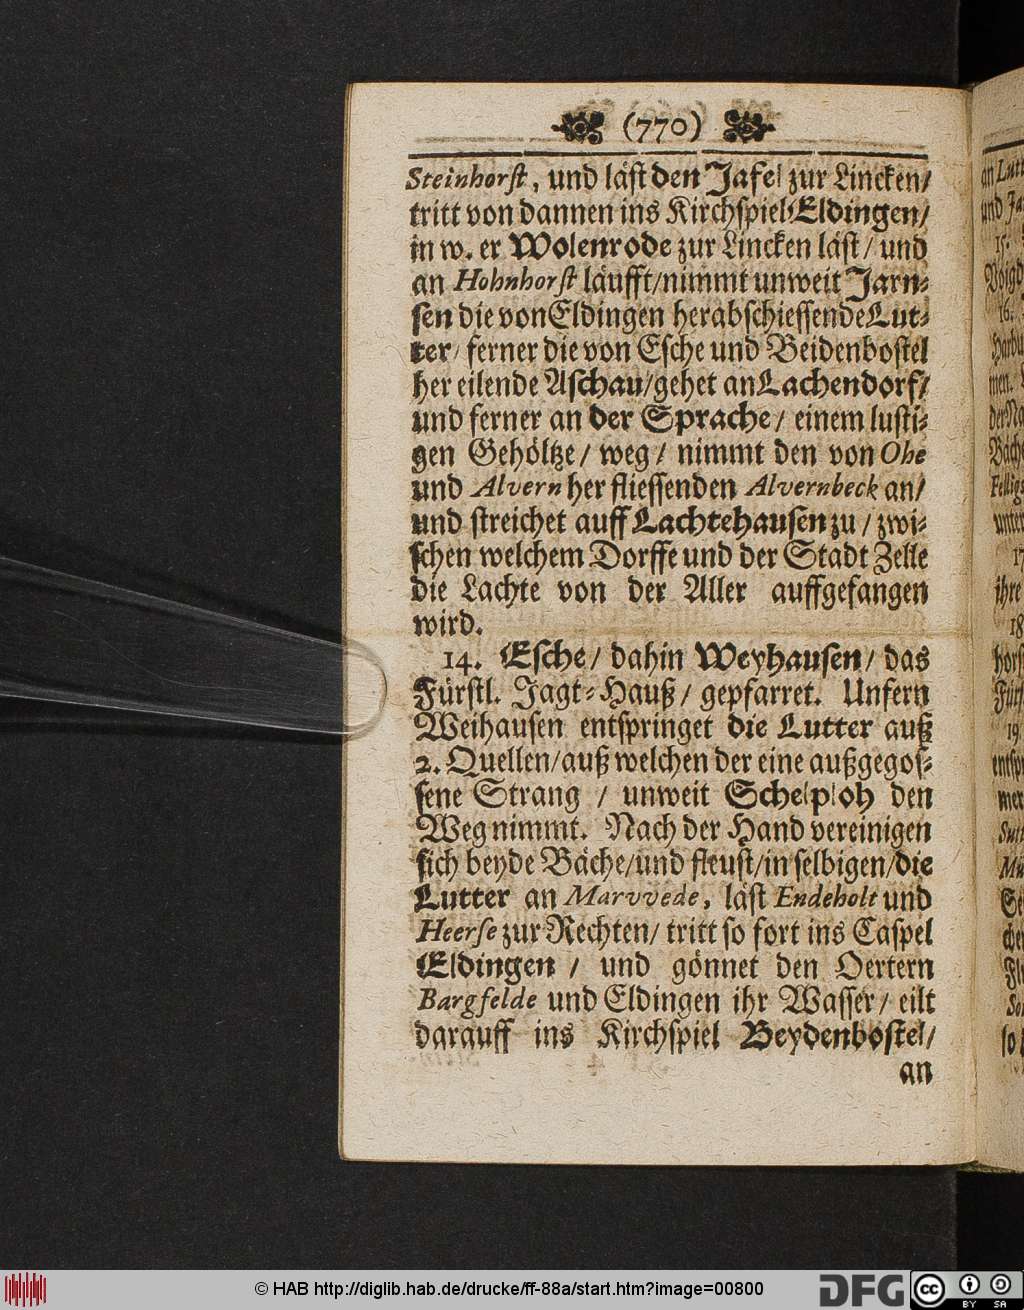 (770)
Steinhorſt, und läſt den Jafel zur Lincken/
tritt von dannen ins Kirchſpiel Eldingen/
in w. er Wolenrode zur Lincken läſt/ und
an Hohnhorſt läufft/nimmt unweit Jarn⸗
ſen die von Eldingen herabſchieſſende Lut⸗
ter/ ferner die von Eſche und Beidenboſtel
her eilende Aſchau/gehet an Lachendorf/
und ferner an der Sprache/ einem luſti⸗
gen Gehöltze/ weg/ nimmt den von Ohe
und Alvern her flieſſenden Alvernbeck an/
und ſtreichet auff Lachtehauſen zu/ zwi⸗
ſchen welchem Dorffe und der Stadt Zelle
die Lachte von der Aller auffgefangen
wird.
14. Eſche/ dahin Weyhauſen/ das
Fürſtl. Jagt⸗Hauß/ gepfarret. Unfern
Weihauſen entſpringet die Lutter auß
2. Quellen/auß welchen der eine außgegoſ⸗
ſene Strang / unweit Schelploh den
Weg nimmt. Nach der Hand vereinigen
ſich beyde Bäche/und fleuſt/in ſelbigen/die
Lutter an Marvvede, läſt Endeholt und
Heerſe zur Rechten/ tritt ſo fort ins Caſpel
Eldingen / und gönnet den Oertern
Bargfelde und Eldingen ihr Waſſer/ eilt
darauff ins Kirchſpiel Beydenboſtel/
an
© HAB http://diglib.hab.de/drucke/ff-88a/start.htm?image=00800
DFG
cc BY SA